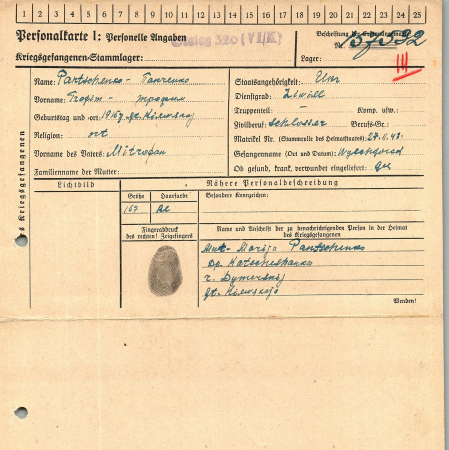 1 2 3 4 5 6 7 8 9 10 11 12 13 14 15 16 17 18 19 20 21 22 23 24 25
Personalkarte I: Personelle Angaben
Kriegsgefangenen-Stammlager:
Stalag 326 (VI/K)
Beschriftung der Erkennungsmarke
Nr.
Lager:
III
des Kriegsgefangenen
Name: Pantschenko - Панченко
Vorname: Trofim - трофим
Geburtstag und -ort: 1915
Religion: ort
Vorname des Vaters: Mitrofan
Familienname der Mutter:
Staatsangehörigkeit: Ukr
Dienstgrad: Zivill
Truppenteil: - Komp. usw.:
Zivilberuf: Schlosser Berufs-Gr.:
Matrikel Nr. (Stammrolle des Heimatstaates): 27.11.43
Gefangennahme (Ort und Datum): Wyschgorod
Ob gefund, krank, verwundet eingeliefert: ges
Lichtbild
Nähere Personalbeschreibung
Größe Haarfarbe
Besondere Kennzeichen:
Fingerabdruck
des rechten! Zeigefingers
Name und Anschrift der zu benachrichtigenden Person in der Heimat
des Kriegsgefangenen
Mut- Marija Pantschenko
r. Dymerskij
Wenden!